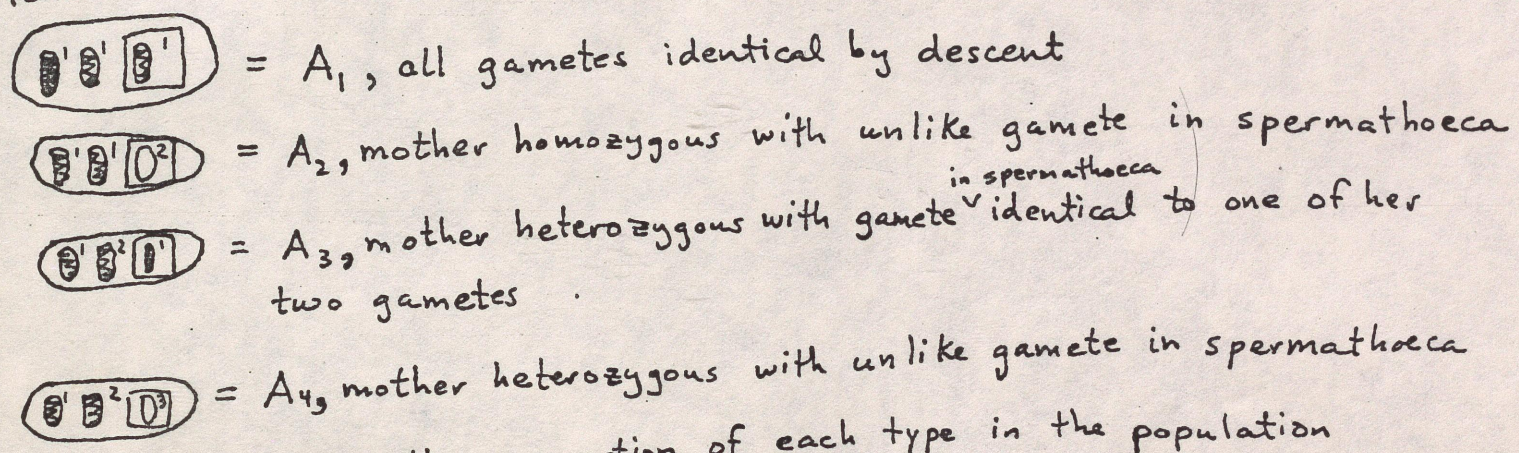 1 1 1 = A1, all gametes identical by descent
1 1 2 = A2, mother homozygous with unlike gamete in spermathoeca
in spermathoeca
1 2 1 = A3, mother heterozygous with gamete ˅ identical to one of her
two gametes
1 2 3 = A4, mother heterozygous with unlike gamete in spermathoeca
of each type in the population